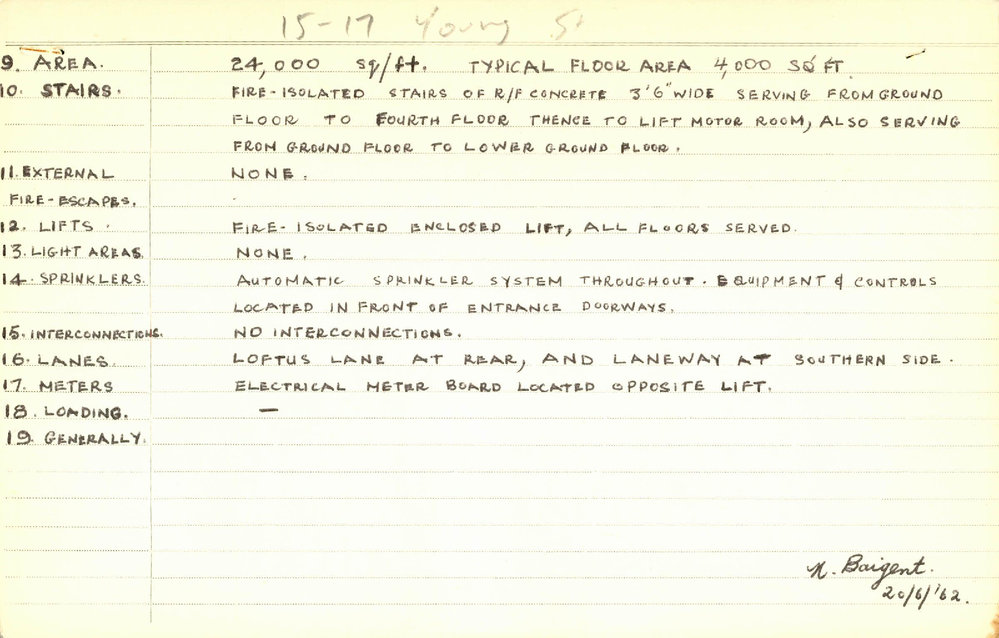 15-17 Young St
9. AREA. 24,000 sq/ft. TYPICAL FLOOR AREA 4,000 SQ FT.
10. STAIRS. FIRE-ISOLATED STAIRS OF R/F CONCRETE 3'6" WIDE SERVING FROM GROUND
FLOOR TO FOURTH FLOOR THENCE TO LIFT MOTOR ROOM, ALSO SERVING
FROM GROUND FLOOR TO LOWER GROUND FLOOR.
11. EXTERNAL NONE.
FIRE-ESCAPES.
12. LIFTS. FIRE-ISOLATED ENCLOSED LIFT, ALL FLOORS SERVED.
13. LIGHT AREAS. NONE.
14. SPRINKLERS. AUTOMATIC SPRINKLER SYSTEM THROUGHOUT. EQUIPMENT & CONTROLS
LOCATED IN FRONT OF ENTRANCE DOORWAYS.
15. INTERCONNECTIONS. NO INTERCONNECTIONS.
16. LANES. LOFTUS LANE AT REAR, AND LANEWAY AT SOUTHERN SIDE.
17. METERS ELECTRICAL METER BOARD LOCATED OPPOSITE LIFT.
18. LOADING. —
19. GENERALLY.
N. Baigent.
20/6/'62.